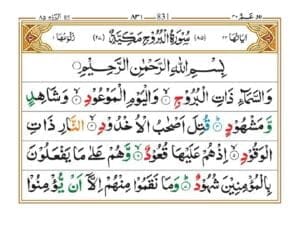 831
سُوْرَةُ الْبُرُوْجِ مَكِّيَّةٌ
بِسْمِ اللّٰهِ الرَّحْمٰنِ الرَّحِیْمِ
وَالسَّمَآءِ ذَاتِ الْبُرُوْجِ ۙ وَالْیَوْمِ الْمَوْعُوْدِ ۙ وَشَاهِدٍ
وَّمَشْهُوْدٍ ؕ قُتِلَ اَصْحٰبُ الْاُخْدُوْدِ ۙ النَّارِ ذَاتِ
الْوَقُوْدِ ۙ اِذْهُمْ عَلَیْهَا قُعُوْدٌ ۙ وَّهُمْ عَلٰى مَا یَفْعَلُوْنَ
بِالْمُؤْمِنِیْنَ شُهُوْدٌ ؕ وَمَا نَقَمُوْا مِنْهُمْ اِلَّاۤ اَنْ یُّؤْمِنُوْا